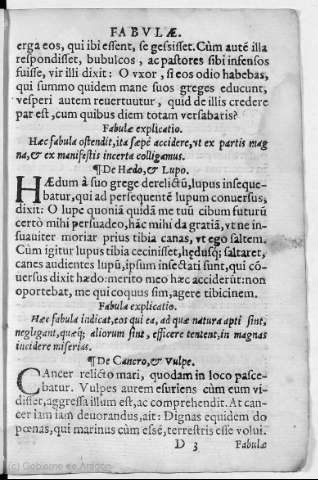 FABVLÆ.
erga eos, qui ibi essent, se gessisset. Cùm autē illa
respondisset, bubulcos, ac pastores sibi infensos
fuisse, vir illi dixit: O vxor, si eos odio habebas,
qui summo quidem mane suos greges educunt,
vesperi autem reuertuutur, quid de illis credere
par est, cum quibus diem totam versabaris?
Fabulæ explicatio.
Hæc fabula ostendit, ita sæpè accidere, vt ex partis mag
na, & ex manifestis incerta colligamus.
¶De Hædo, & Lupo.
HÆdum à suo grege derelictū, lupus inseque-
batur, qui ad persequentē lupum conuersus,
dixit: O lupe quoniā quidā me tuū cibum futurū
certò mihi persuadeo, hāc mihi da gratiā, vt ne in-
suauiter moriar prius tibia canas, vt ego saltem.
Cùm igitur lupus tibia cecinisset, hędusq; saltaret,
canes audientes lupū, ipsum insectati sunt, qui cō-
uersus dixit hædo: merito meo hæc acciderūt: non
oportebat, me qui coquus sim, agere tibicinem.
Fabula explicatio.
Hæc fabula indicat, eos qui ea, ad quæ natura apti sint,
negligant, quæq; aliorum sint, efficere tentent, in magnas
incidere miserias.
¶De Cancro, & Vulpe.
CAncer relicto mari, quodam in loco pasce-
batur. Vulpes autem esuriens cùm eum vi-
disset, aggressa illum est, ac comprehendit. At can-
cer iam iam deuorandus, ait: Dignas equidem do
pœnas, qui marinus cùm essē, terrestris esse volui.
D 3 Fabulæ
(c) Gobierno de Aragón